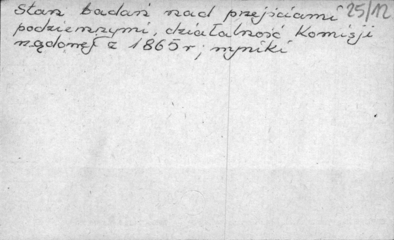 Stan badań nad przejściami 25/12
podziemnymi, działalność Komisji
rządowej z 1865 r; wyniki